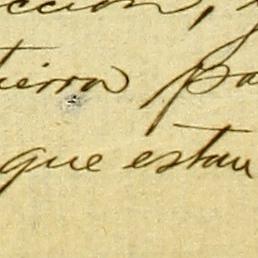 ccion,
tierra pa
que estan